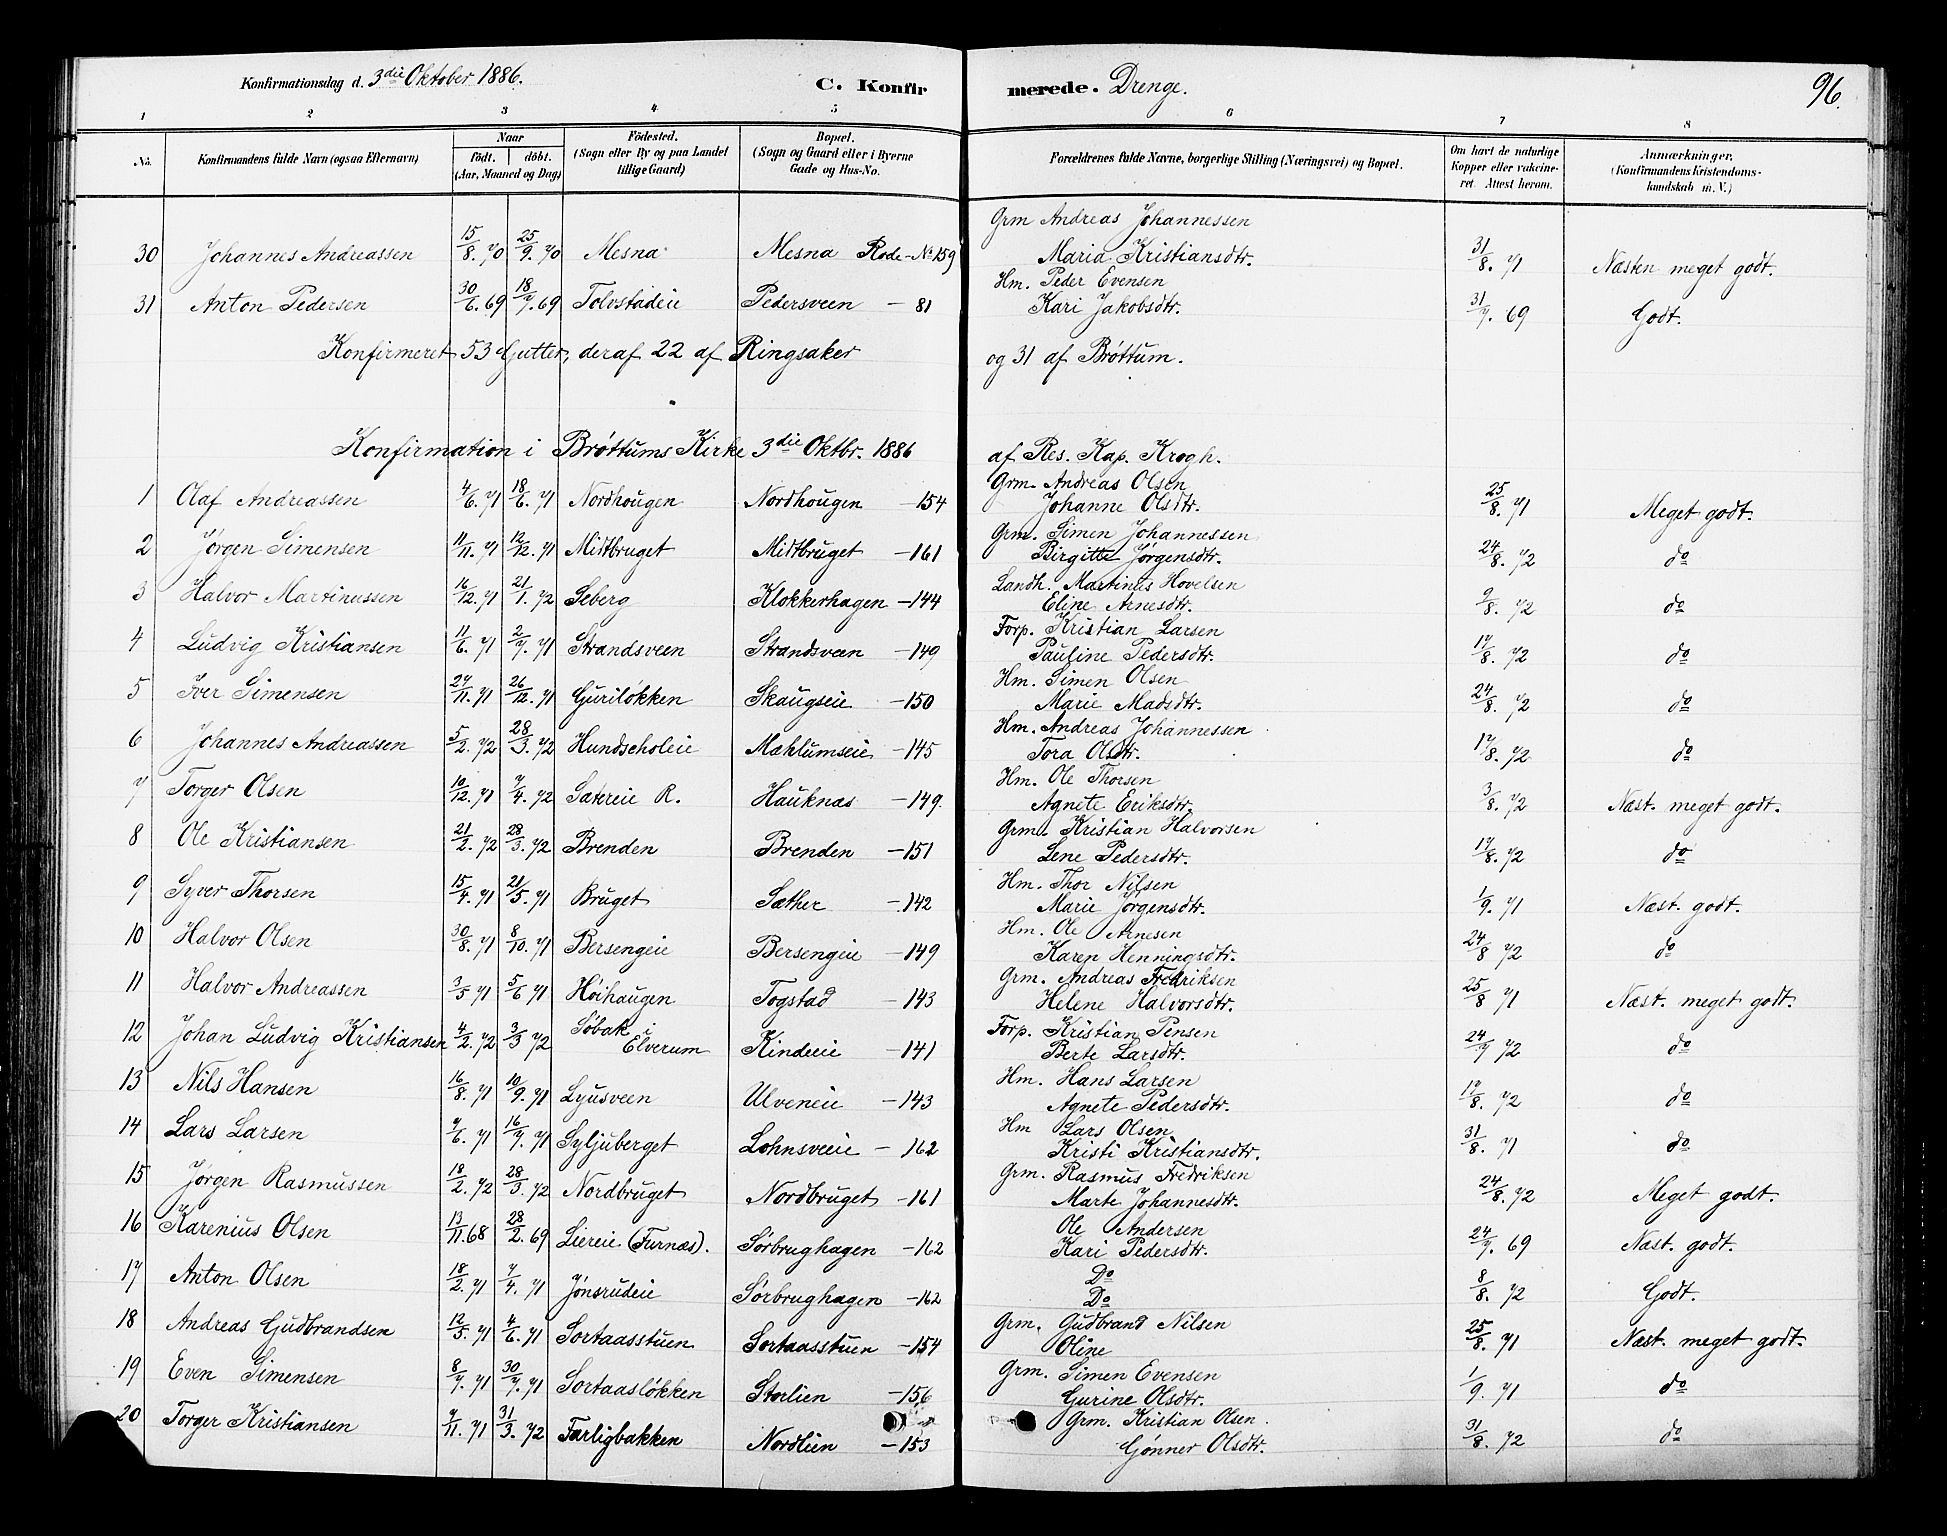 Konfirmationsdag d. 3die Oktober 1886.
C. Konfirmerede. Drenge.
96.
1 2 3 4 5 6 7 8
No. Konfirmandens fulde Navn (ogsaa Efternavn) Naar födt. döbt. (Aar, Maaned og Dag) Födested. (Sogn eller By og paa Landet tillige Gaard) Bopæl. (Sogn og Gaard eller i Byerne Gade og Hus-No. Forældrenes fulde Navne, borgerlige Stilling (Næringsvei) og Bopæl. Om havt de naturlige Kopper eller vakcineret. Attest herom. Anmærkninger. (Konfirmandens Kristendomskundskab m. V.)
30 Johannes Andreassen 15/8. 70 25/9. 70 Mesna Mesna Rode-No 159 Grm Andreas Johannessen
Maria Kristiansdtr. 31/8. 71 Næsten meget godt.
31 Anton Pedersen 30/6. 69 18/7. 69 Tolvstadeie Pedersveen — 81 Hm. Peder Evensen
Kari Jakobsdtr. 31/7. 69 Godt.
Konfirmeret 53 Gutter, deraf 22 af Ringsaker og 31 af Brøttum.
Konfirmation i Brøttums Kirke 3die Oktbr. 1886 af Res. Kap. Krogh.
1 Olaf Andreassen 4/6. 71 18/6. 71 Nordhougen Nordhougen —154 Grm. Andreas Olsen
Johanne Olsdtr. 25/8. 71 Meget godt.
2 Jørgen Simensen 11/11. 71 12/12. 71 Midtbruget Midtbruget —161 Grm. Simen Johannessen
Birgitte Jørgensdtr. 24/8. 72 do
3 Halvor Martinussen 16/12. 71 21/1. 72 Seberg Klokkerhagen —144 Landh. Martinus Hovelsen
Eline Arnesdtr. 9/8. 72 do
4 Ludvig Kristiansen 11/6. 71 2/7. 71 Strandsveen Strandsveen —149 Forp. Kristian Larsen
Pauline Pedersdtr. 17/8. 72 do
5 Iver Simensen 24/11. 71 26/12. 71 Guriløkken Skaugseie —150 Hm. Simen Olsen
Marie Madsdtr. 24/8. 72 do
6 Johannes Andreassen 5/2. 72 28/3. 72 Hundscholeie Mæhlumseie —145 Hm. Andreas Johannessen
Tora Olsdtr. 17/8. 72 do
7 Torger Olsen 10/12. 71 7/4. 72 Sætereie R. Hauknæs —149. Hm. Ole Thorsen
Agnete Eriksdtr. 3/8. 72 Næst. meget godt.
8 Ole Kristiansen 21/2. 72 28/3. 72 Brenden Brenden —151 Grm. Kristian Halvorsen
Lene Pedersdtr. 17/8. 72 do
9 Syver Thorsen 15/4. 71 21/5. 71 Bruget Sæther —142 Hm. Thor Nilsen
Marie Jørgensdtr. 1/9. 71 Næst. godt.
10 Halvor Olsen 30/8. 71 8/10. 71 Bersengeie Bersengeie —149 Hm. Ole Arnesen
Karen Henningsdtr. 24/8 72 do
11 Halvor Andreassen 3/5 71 5/6 71 Høihaugen Togstad —143 Grm. Andreas Fredriksen
Helene Halvorsdtr. 25/8 71 Næst. meget godt.
12 Johan Ludvig Kristiansen 4/2. 72 3/3 72 Søbak i Elverum Kindeie —141 Forp. Kristian Pensen
Berte Larsdtr. 24/7 72 do
13 Nils Hansen 16/8. 71 10/9. 71 Lyusveen Ulveneie —143 Hm. Hans Larsen
Agnete Pedersdtr. 17/8. 72 do
14 Lars Larsen 7/6. 71 16/7. 71 Syljuberget Lohnsveeie — 162 Hm Lars Olsen
Kristi Kristiansdtr. 31/8. 71 do
15 Jørgen Rasmussen 18/2. 72 28/3. 72 Nordbruget Nordbruget —161 Grm. Rasmus Fredriksen
Marte Johannesdtr. 24/8. 72 Meget godt.
16 Karenius Olsen 13/11. 68 28/2. 69 Liereie (Furnæs). Sørbrughagen —162 Ole Andersen
Kari Pedersdtr. 24/7. 69 Næst. godt.
17 Anton Olsen 18/2. 71 7/4. 71 Jønsrudeie Sørbrughagen —162 Do
Do 8/8. 72 Godt.
18 Andreas Gudbrandsen 12/5. 71 4/6. 71 Sortaasstuen Sortaasstuen —154 Grm. Gudbrand Nilsen
Oline 25/8. 71 Næst. meget godt.
19 Even Simensen 8/7. 71 30/7. 71 Sortaasløkken Storlien —156 Grm. Simen Evensen
Gurine Olsdtr. 1/9. 71 do
20 Torger Kristiansen 7/11. 71 31/3. 72 Farligbakken Nordlien —153 Grm. Kristian Olsen.
Gønner Olsdtr. 31/8. 72 do